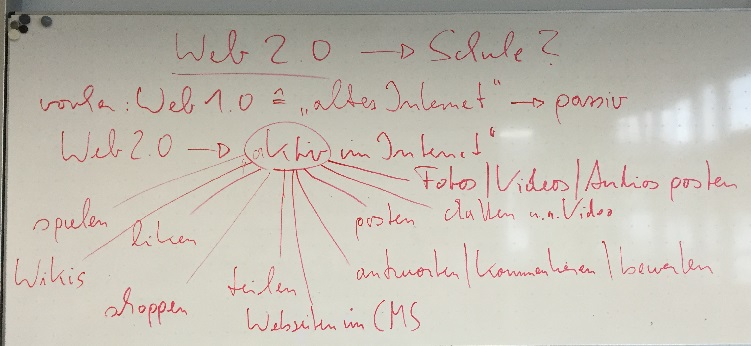 Web 2.0 → Schule?
vorher: Web 1.0 ≙ „altes Internet“ → passiv
Web 2.0 → aktiv im Internet“
Fotos/Videos/Audios posten
spielen
liken
posten
chatten u.a. Video
Wikis
shoppen
teilen
antworten/kommentieren/bewerten
Webseiten im CMS